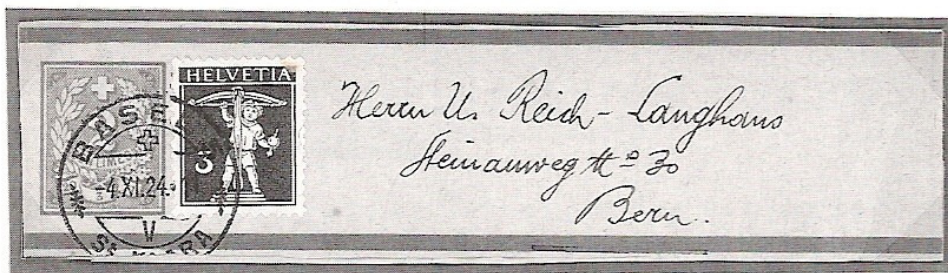 HELVETIA
3
BASEL
-4.XI.24.-
V
ST. KLARA
Herrn U. Reich-Langhans
Steinauweg No 30
Bern.